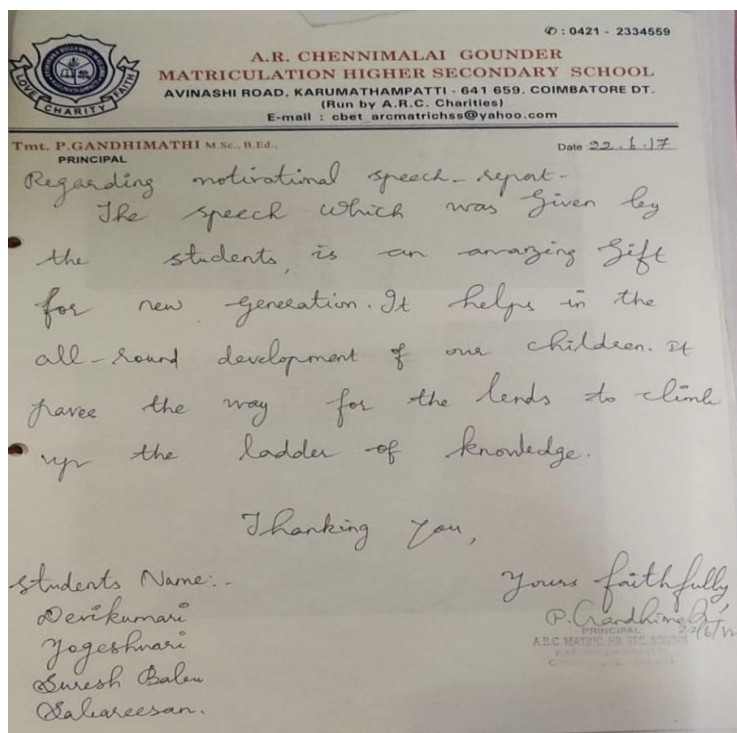 ✆ : 0421 - 2334559
A.R. CHENNIMALAI GOUNDER
MATRICULATION HIGHER SECONDARY SCHOOL
AVINASHI ROAD, KARUMATHAMPATTI - 641 659. COIMBATORE DT.
(Run by A.R.C. Charities)
E-mail : cbet_arcmatrichss@yahoo.com
LOVE CHARITY FAITH
Tmt. P.GANDHIMATHI M.Sc., B.Ed.,
PRINCIPAL
Date 22.6.17
Regarding motivational speech - report -
The speech which was given by
the students, is an amazing gift
for new generation. It helps in the
all-round development of our children. It
pavee the way for the lends to climb
up the ladder of knowledge.
Thanking you,
Students Name:-
Devikumari
Yogeshwari
Suresh Babu
Sabareesan.
Yours faithfully
P. Gandhimathi
22/6/17
PRINCIPAL
A.R.C MATRIC HR. SEC. SCHOOL